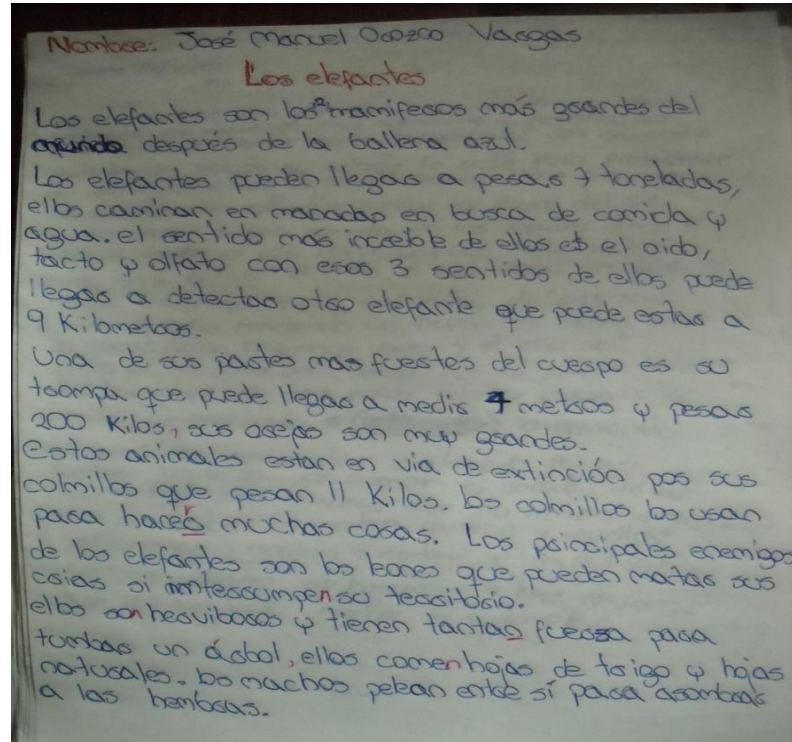 Nombre: José Manuel Orozco Vargas
Los elefantes
Los elefantes son los 2 mamiferos más grandes del
mundo después de la ballena azul.
Los elefantes pueden llegar a pesar 7 toneladas,
ellos caminan en manadas en busca de comida y
agua. el sentido más increible de ellos es el oido,
tacto y olfato con esos 3 sentidos de ellos puede
llegar a detectar otro elefante que puede estar a
9 Kilometros.
Una de sus partes mas fuertes del cuerpo es su
trompa que puede llegar a medir 7 metros y pesar
200 Kilos, sus orejas son muy grandes.
Estos animales estan en via de extinción por sus
colmillos que pesan 11 Kilos. los colmillos los usan
para hacer muchas cosas. Los principales enemigos
de los elefantes son los leones que pueden matar sus
crias si interrumpen su territorio.
ellos son herviboros y tienen tantan fuerza para
tumbar un árbol, ellos comen hojas de trigo y hojas
naturales. los machos pelean entre sí para asombrar
a las hembras.